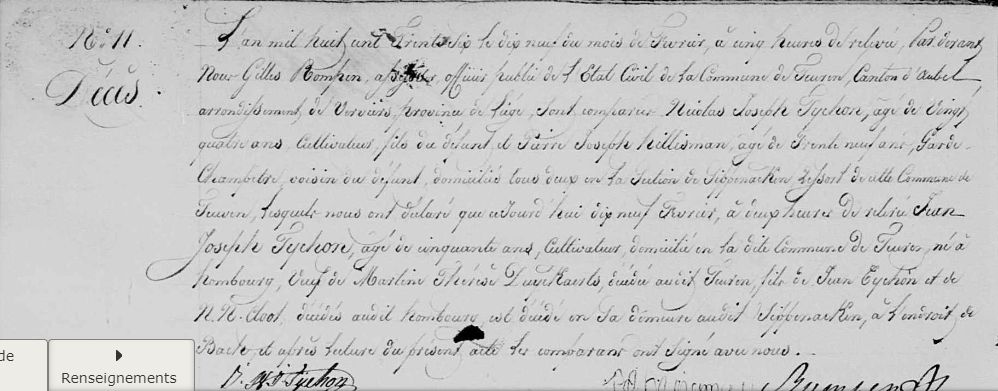 N.° 11.
Décès.
L'an mil huit cent Trente Six le dix neuf du mois de Fevrier, à cinq heures de relevée, Par devant
Nous Gilles Rompen, officier public de l'Etat Civil de la Commune de Teuven, Canton d'Aubel
arrondissement de Verviers, province de Liége, sont comparus Nicolas Joseph Tychon, agé de Vingt
quatre ans, Cultivateur, fils du défunt, et Pierre Joseph hillisman, agé de Trente neuf ans, Garde-
Champêtre, voisin du défunt, domiciliés tous deux en la Section de Sippenaeken, Ressort de cette Commune de
Teuven, lesquels nous ont declaré que aujourd'hui dix neuf Fevrier, à deux heures de relevée Jean
Joseph Tychon, agé de cinquante ans, Cultivateur, domicilié en la dite Commune de Teuven, né à
hombourg, Veuf de Martine Thérèse décédée audit Teuven, fils de Jean Tychon et de
N. N. Cloot, décédés audit hombourg, est décédé en sa demeure audit Sippenaeken, à l'endroit de
et après lecture du présent acte les comparans ont signé avec nous.
N J Tychon
de
Renseignements